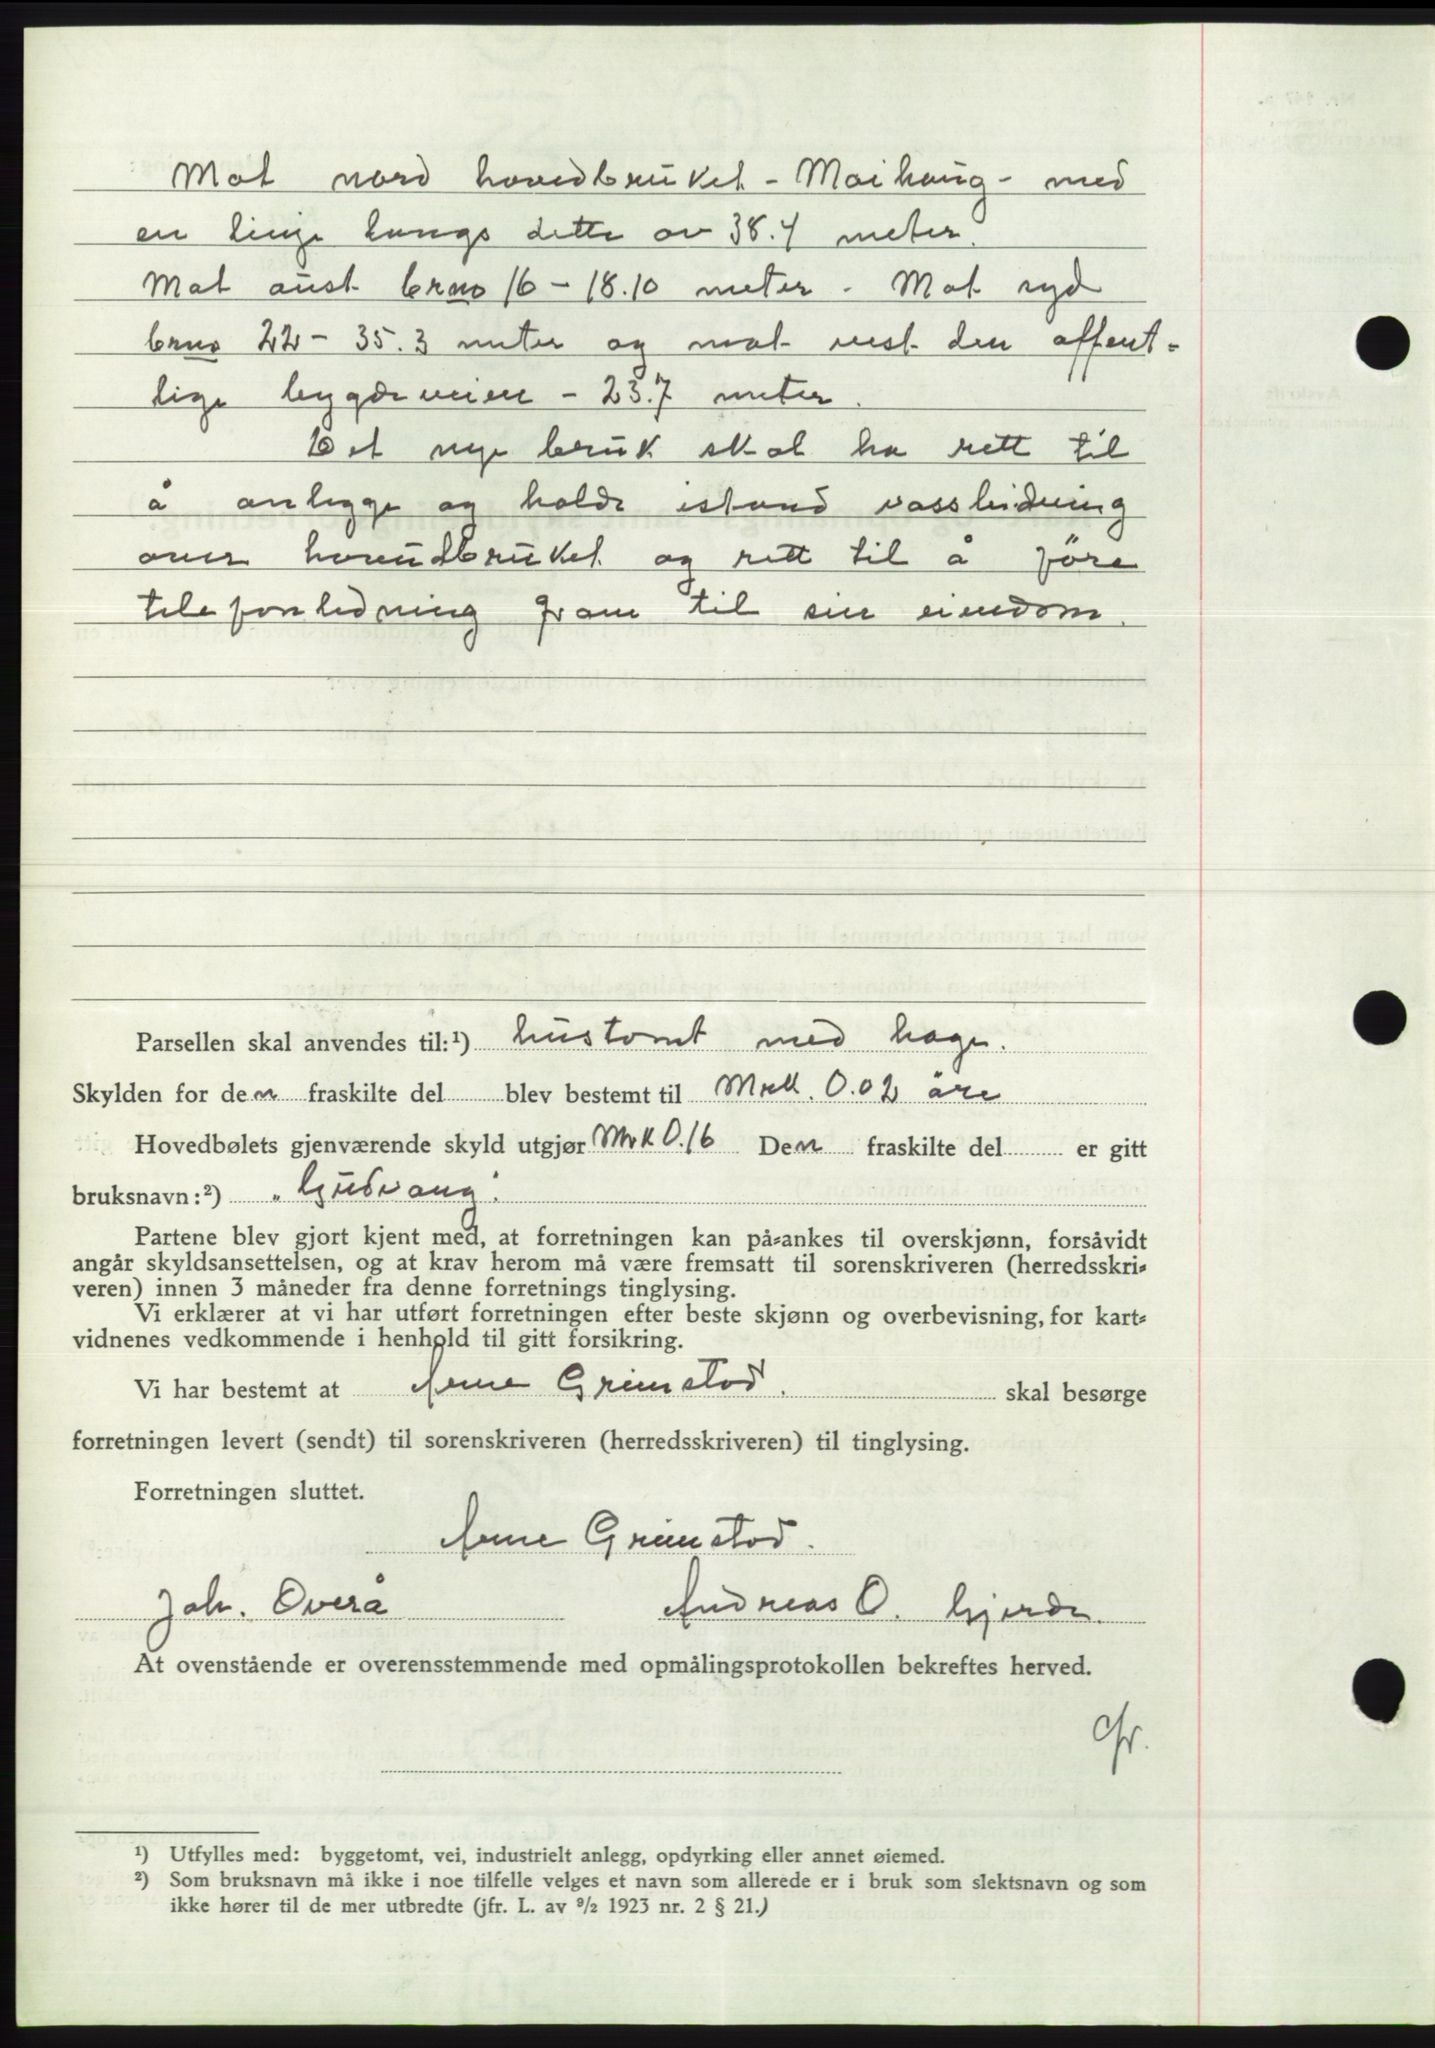 Mot nord hovedbruket - Maihaug - med
en linje langs dette av 38.4 meter.
Mot aust brno 16 - 18.10 meter. Mot syd
brno 22 - 35.3 meter og mot vest den offent-
lige bygdeveien - 23.7 meter.
Det nye bruk skal ha rett til
å anlegge og holde istand vassleidning
over hovedbruket og rett til å føre
telefonledning fram til sin eiendom.
Parsellen skal anvendes til:¹) hustomt med hage.
Skylden for den fraskilte del blev bestemt til Mrk. 0.02 øre
Hovedbølets gjenværende skyld utgjør Mrk 0.16 Den fraskilte del er gitt
bruksnavn:²) "Gudvang".
Partene blev gjort kjent med, at forretningen kan på-ankes til overskjønn, forsåvidt
angår skyldsansettelsen, og at krav herom må være fremsatt til sorenskriveren (herredsskri-
veren) innen 3 måneder fra denne forretnings tinglysing.
Vi erklærer at vi har utført forretningen efter beste skjønn og overbevisning, for kart-
vidnenes vedkommende i henhold til gitt forsikring.
Vi har bestemt at Arne Grimstad. skal besørge
forretningen levert (sendt) til sorenskriveren (herredsskriveren) til tinglysing.
Forretningen sluttet.
Arne Grimstad.
Joh. Overå Andreas O. Gjerde.
At ovenstående er overensstemmende med opmålingsprotokollen bekreftes herved.
¹) Utfylles med: byggetomt, vei, industrielt anlegg, opdyrking eller annet øiemed.
²) Som bruksnavn må ikke i noe tilfelle velges et navn som allerede er i bruk som slektsnavn og som
ikke hører til de mer utbredte (jfr. L. av ⁹/₂ 1923 nr. 2 § 21.)